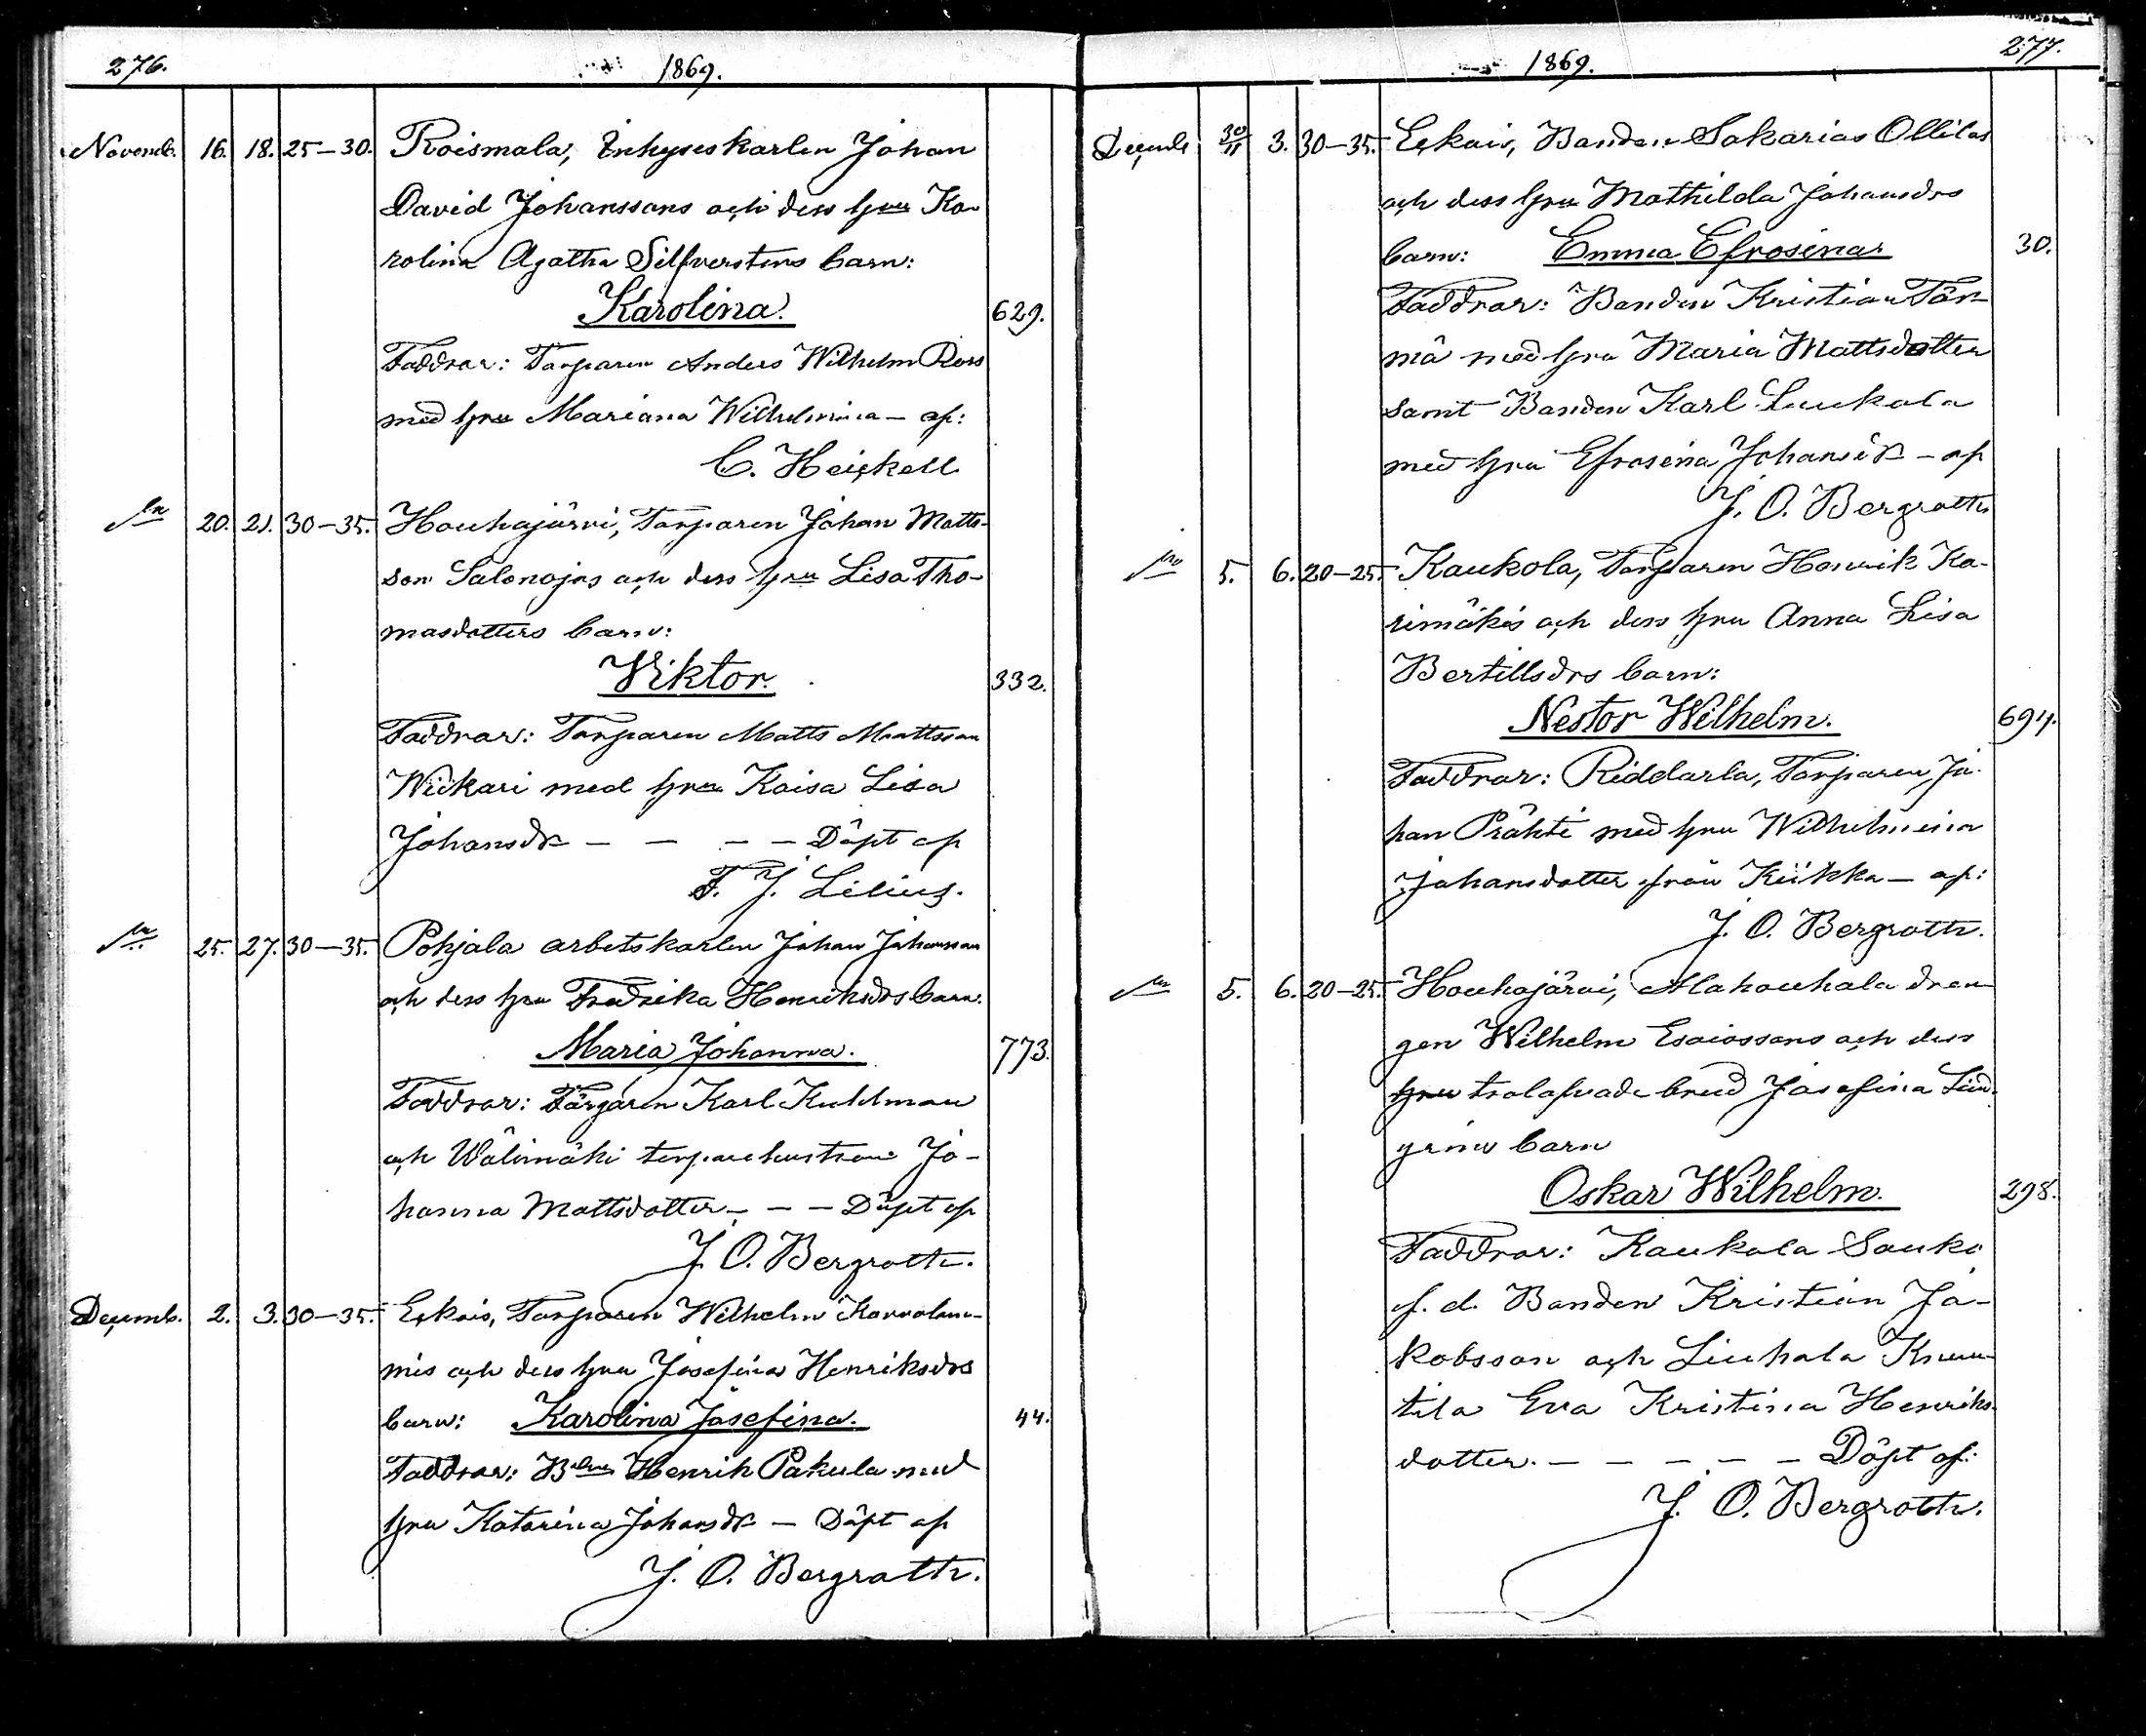 276.
1869.
Novemb. 16. 18. 25–30. Roismala, Inhyseskarlen Johan
David Johanssons och dess hru Ka-
rolina Agatha Silfverstens barn:
Karolina. 629.
Faddrar: Torparen Anders Wilhelm Ross
med hru Mariana Wilhelmina – af:
C. Heickell
20. 21. 30–35. Houhajärvi, Torparen Johan Matts-
son Salonojas och dess hru Lisa Tho-
masdotters barn:
Viktor. 332.
Faddrar: Torparen Matts Mattsson
Wickari med hru Kaisa Lisa
Johansdr – – – – Döpt af
F. J. Lilius.
25. 27. 30–35. Pohjala arbetskarlen Johan Johansson
och dess hru Fredrika Henriksdrs barn.
Maria Johanna. 773.
Faddrar: Färgaren Karl Kuhlman
och Wälimäki torparehustrun Jo-
hanna Mattsdotter – – – Döpt af
J. O. Bergroth.
Decemb. 2. 3. 30–35. Eckois, Torparen Wilhelm
mis och dess hru Josefina Henriksdrs
barn: Karolina Josefina. 44.
Faddrar: Henrik Pakula med
hru Katarina Johansdr – Döpt af
J. O. Bergroth.
1869.
277.
Decemb 30/11 3. 30–35. Eckois, Bonden Sakarias Ollilas
och dess hru Mathilda Johansdrs
barn: Emma Efrosina 30.
Faddrar: Bonden Kristian Tör-
mä med hru Maria Mattsdotter
samt Bonden Karl Laukola
med hru Efrosina Johansdr – af
J. O. Bergroth.
5. 6. 20–25. Kaukola, Torparen Henrik Ka-
rimäkis och dess hru Anna Lisa
Bertillsdrs barn:
Nestor Wilhelm. 694.
Faddrar: Riddarla, Torparen Jo-
han Prähti med hru Wilhelmina
Johansdotter från Kiikka – af:
J. O. Bergroth.
5. 6. 20–25. Houhajärvi, Alahouhala dren-
gen Wilhelm Esaiassons och dess
hru trolofvade brud Josefina Lind-
grens barn
Oskar Wilhelm. 298.
Faddrar: Kaukola Sauko
f. d. Bonden Kristian Ja-
kobsson och Liuhala Knuu-
tila Eva Kristina Henriks-
dotter. – – – – – Döpt af:
J. O. Bergroth.